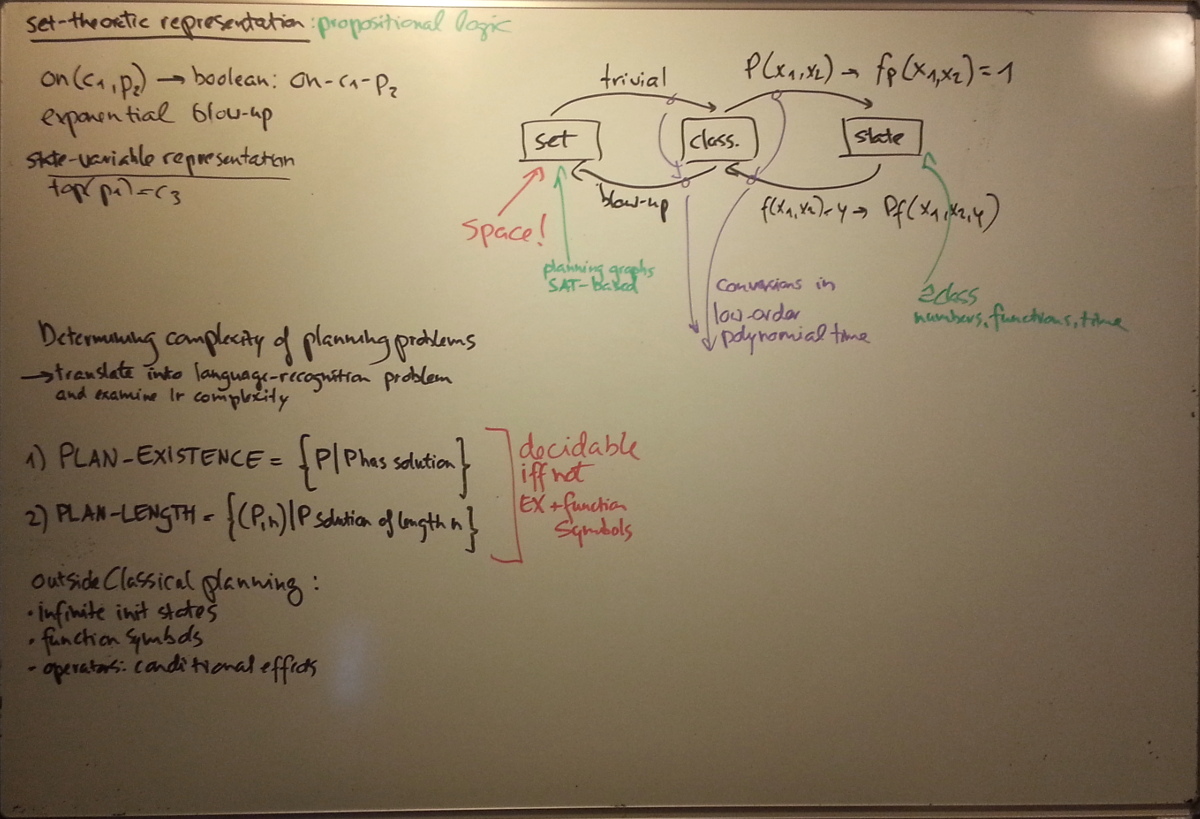 set-theoretic representation: propositional logic
on(c₁,p₂) → boolean: on-c₁-p₂
exponential blow-up
state-variable representation
top(p₁)=c₃
trivial
P(x₁,x₂) → fp(x₁,x₂)=1
set
class.
state
blow-up
f(x₁,x₂)=y → Pf(x₁,x₂,y)
Space!
planning graphs
SAT-based
conversions in
low-order
polynomial time
≥class
numbers, functions, time
Determining complexity of planning problems
→ translate into language-recognition problem
and examine lr complexity
1) PLAN-EXISTENCE = {P|P has solution}
2) PLAN-LENGTH = {(P,n)|P solution of length n}
decidable
iff not
EX + function
symbols
outside Classical planning:
• infinite init states
• function symbols
• operators: conditional effects